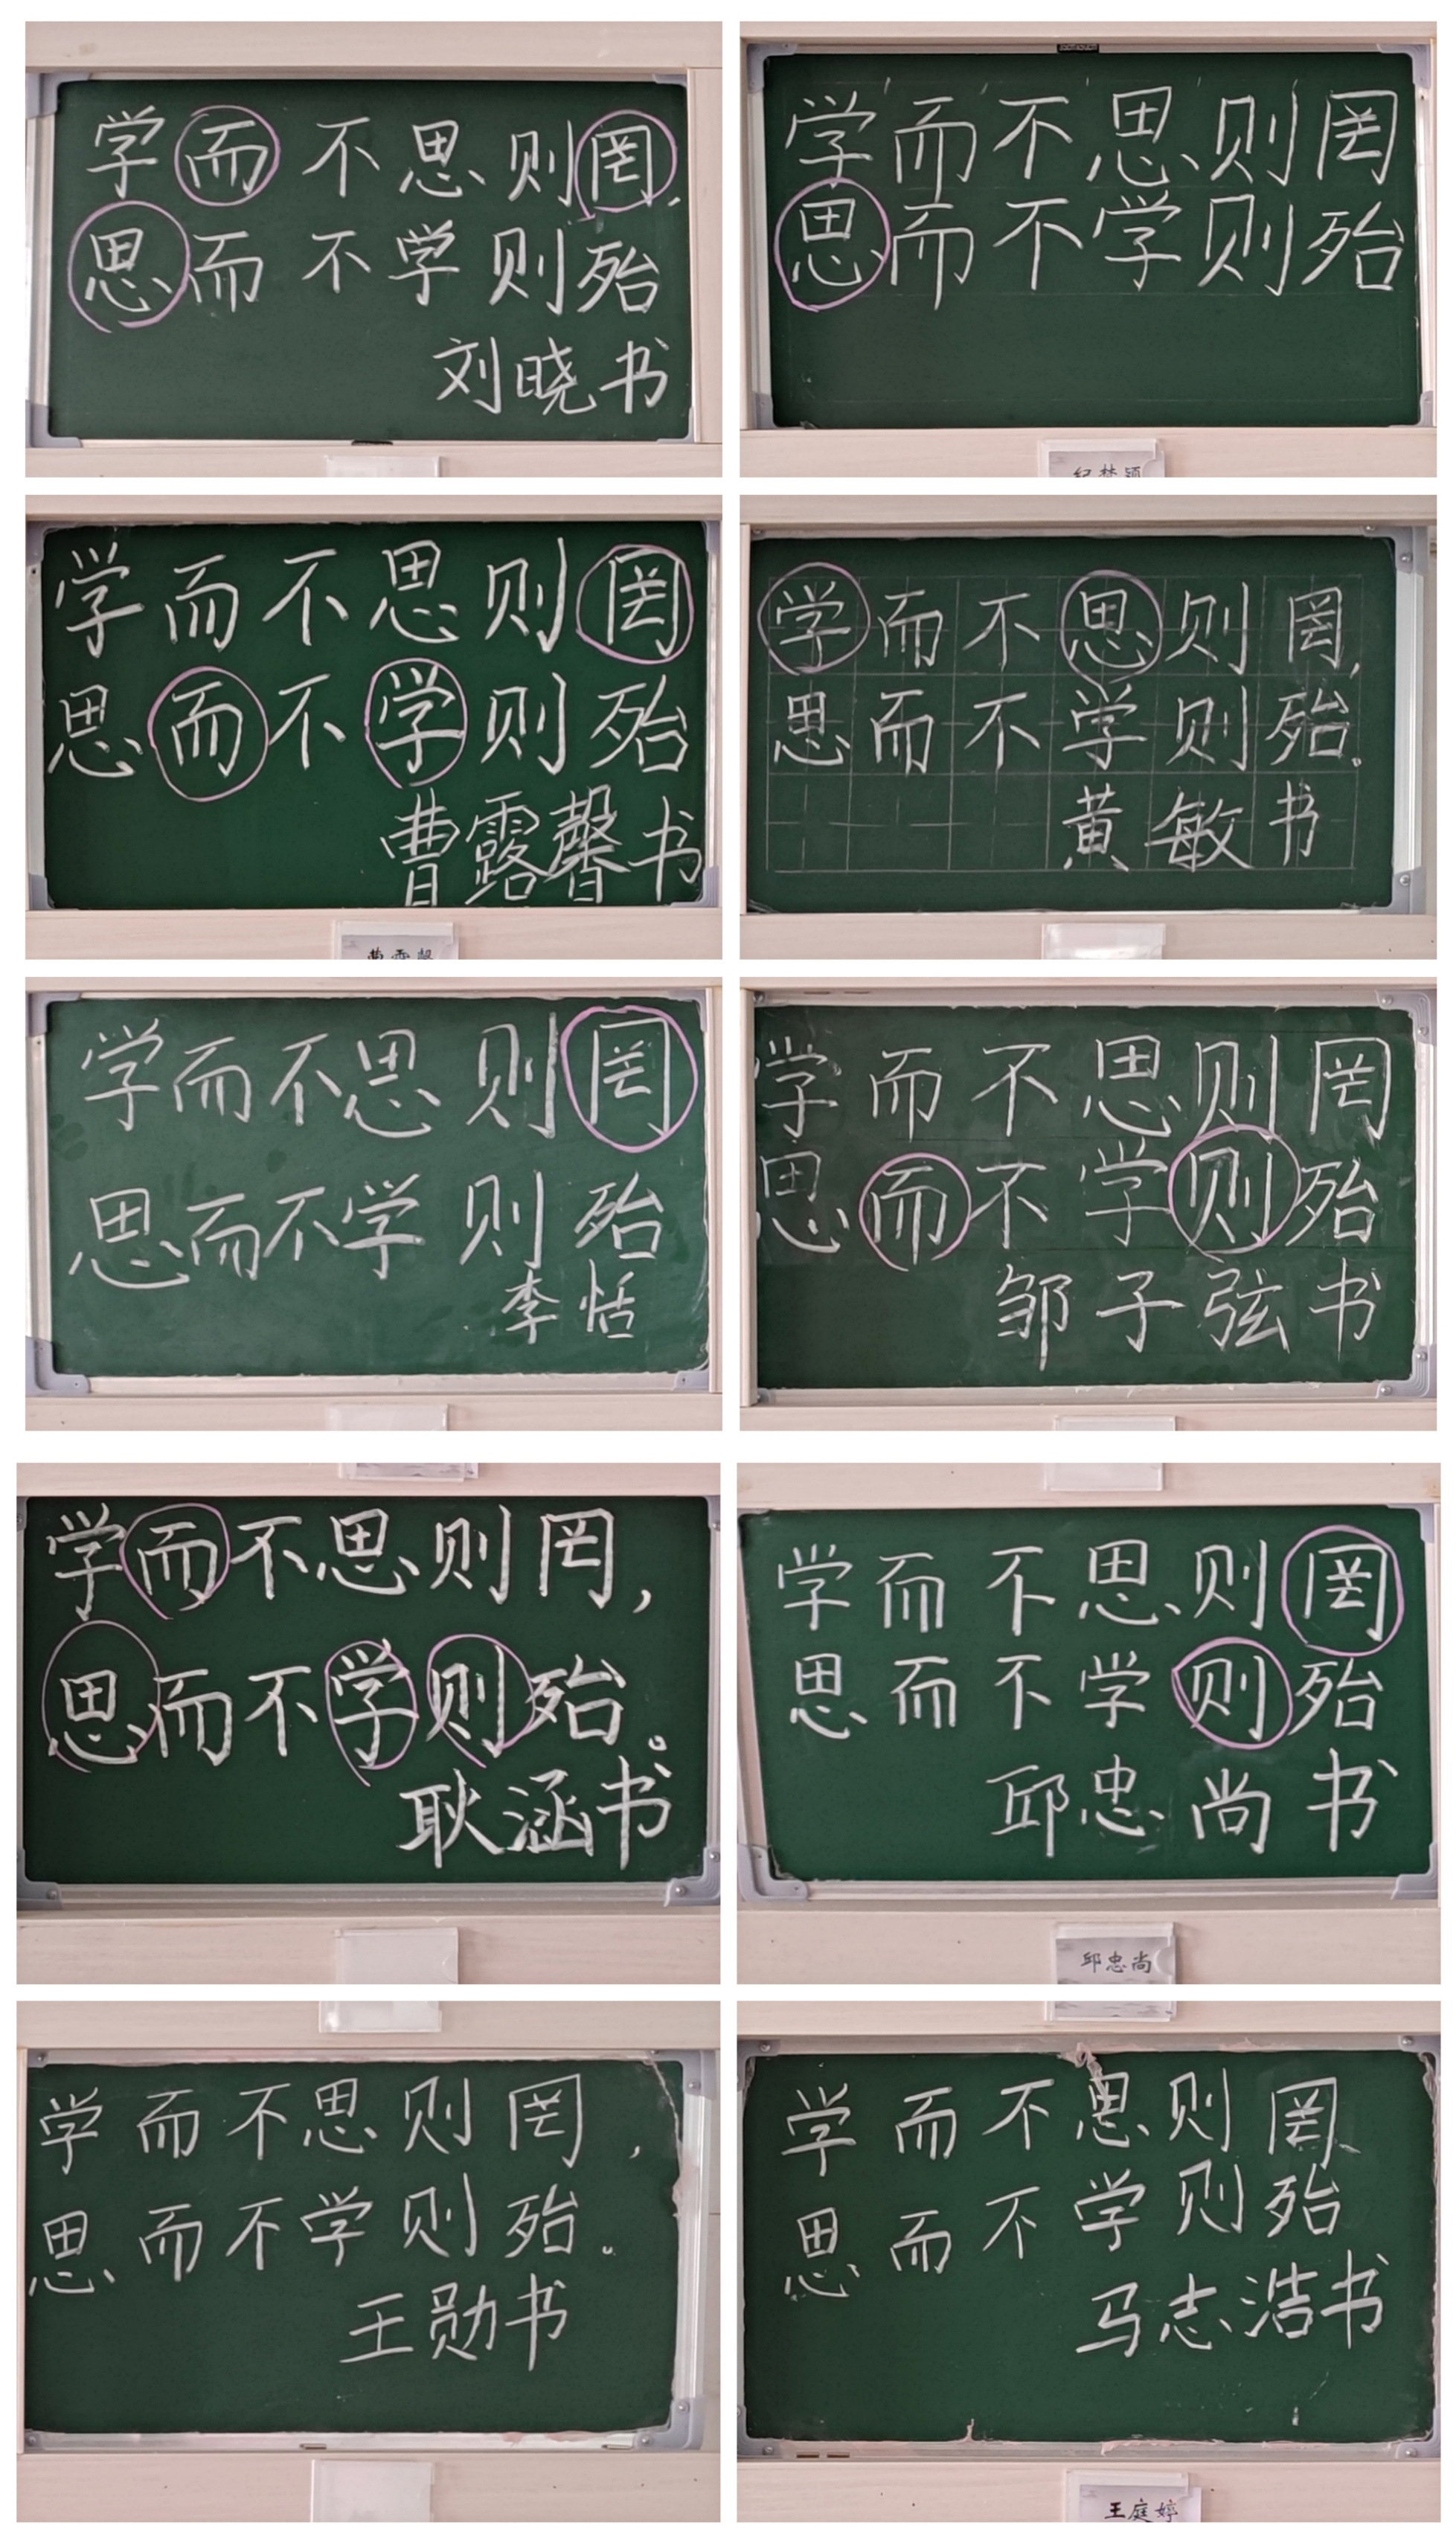 学而不思则罔,
思而不学则殆
刘晓书
学而不思则罔
思而不学则殆
纪梦颖
学而不思则罔
思而不学则殆
曹露馨书
曹露馨
学而不思则罔,
思而不学则殆。
黄敏书
学而不思则罔
思而不学则殆
李恬
学而不思则罔
思而不学则殆
邹子弦书
学而不思则罔,
思而不学则殆。
耿涵书
学而不思则罔
思而不学则殆
邱忠尚书
邱忠尚
学而不思则罔,
思而不学则殆。
王勋书
学而不思则罔、
思而不学则殆
马志浩书
王庭婷